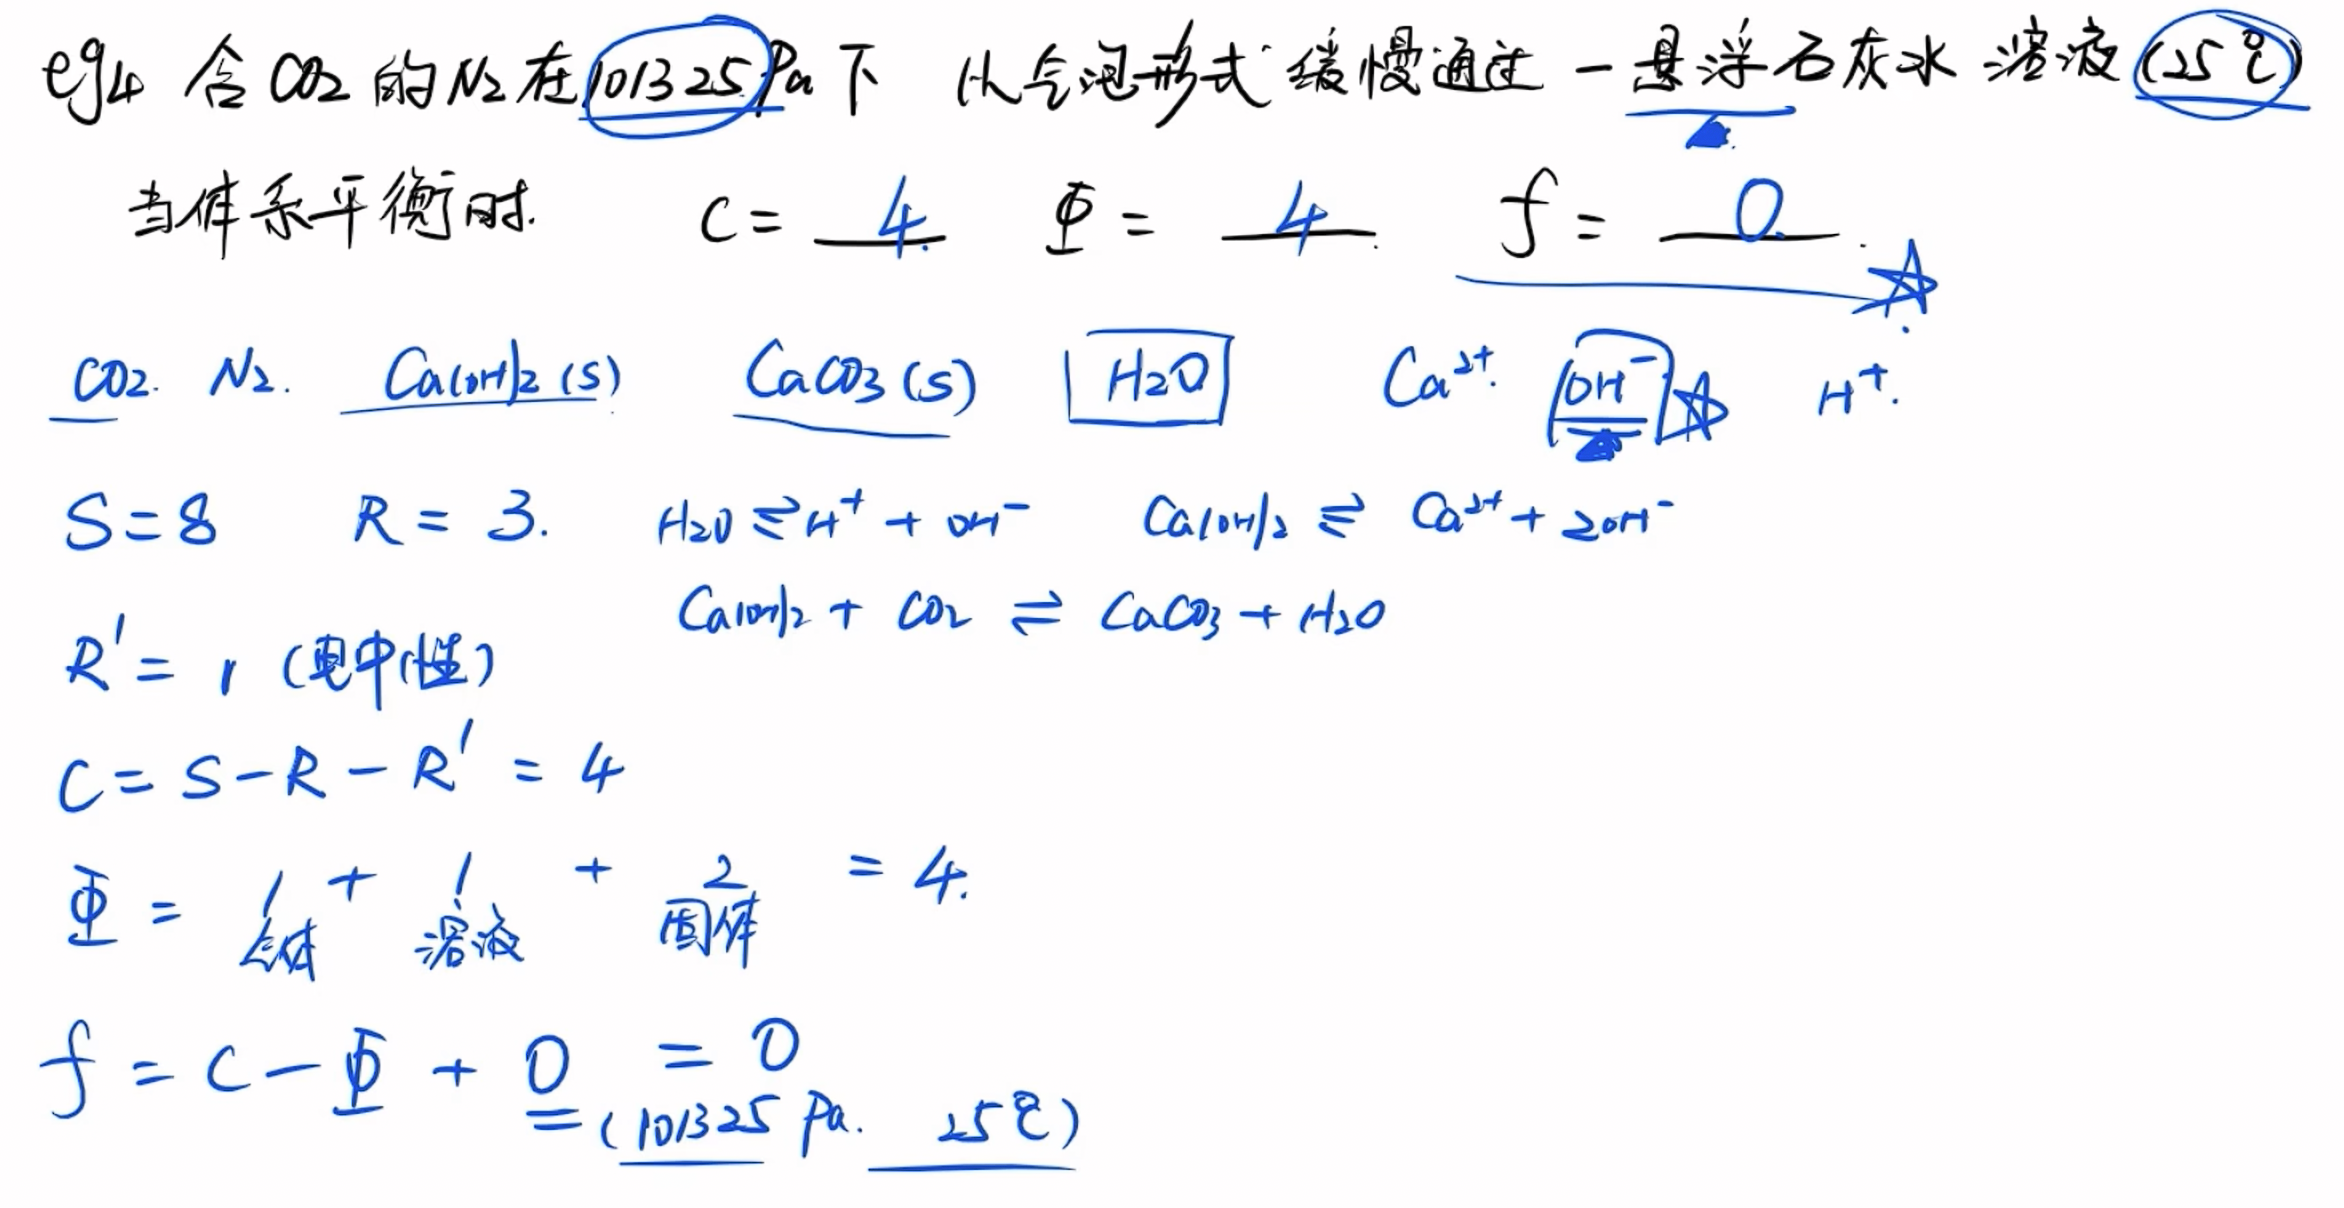 eg4 含CO2的N2在101325Pa下 以气泡形式缓慢通过一悬浮石灰水溶液(25℃)
当体系平衡时. C = 4. Φ = 4. f = 0.
CO2. N2. Ca(OH)2 (s) CaCO3 (s) H2O Ca²⁺. OH⁻ H⁺.
S=8 R = 3. H2O ⇌ H⁺ + OH⁻ Ca(OH)2 ⇌ Ca²⁺ + 2OH⁻
Ca(OH)2 + CO2 ⇌ CaCO3 + H2O
R' = 1 (电中性)
C = S - R - R' = 4
Φ = 1 + 1 + 2 = 4.
气体 溶液 固体
f = C - Φ + 0 = 0
(101325 Pa. 25℃)